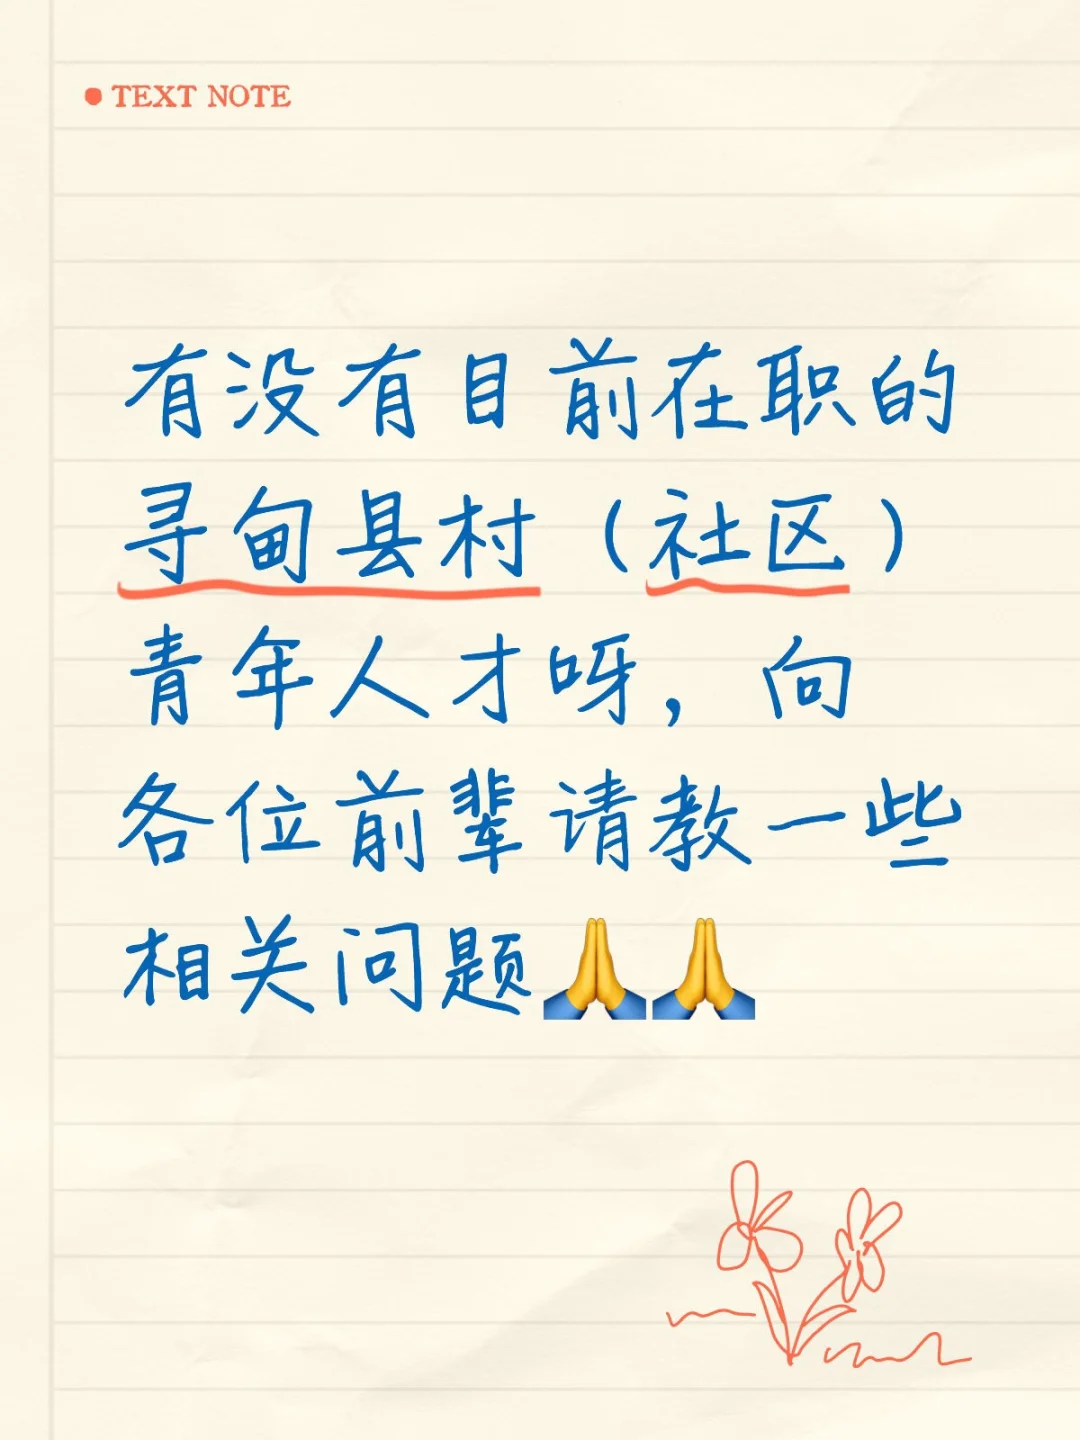 TEXT NOTE
有没有目前在职的
寻甸县村（社区）
青年人才呀，向
各位前辈请教一些
相关问题🙏🙏